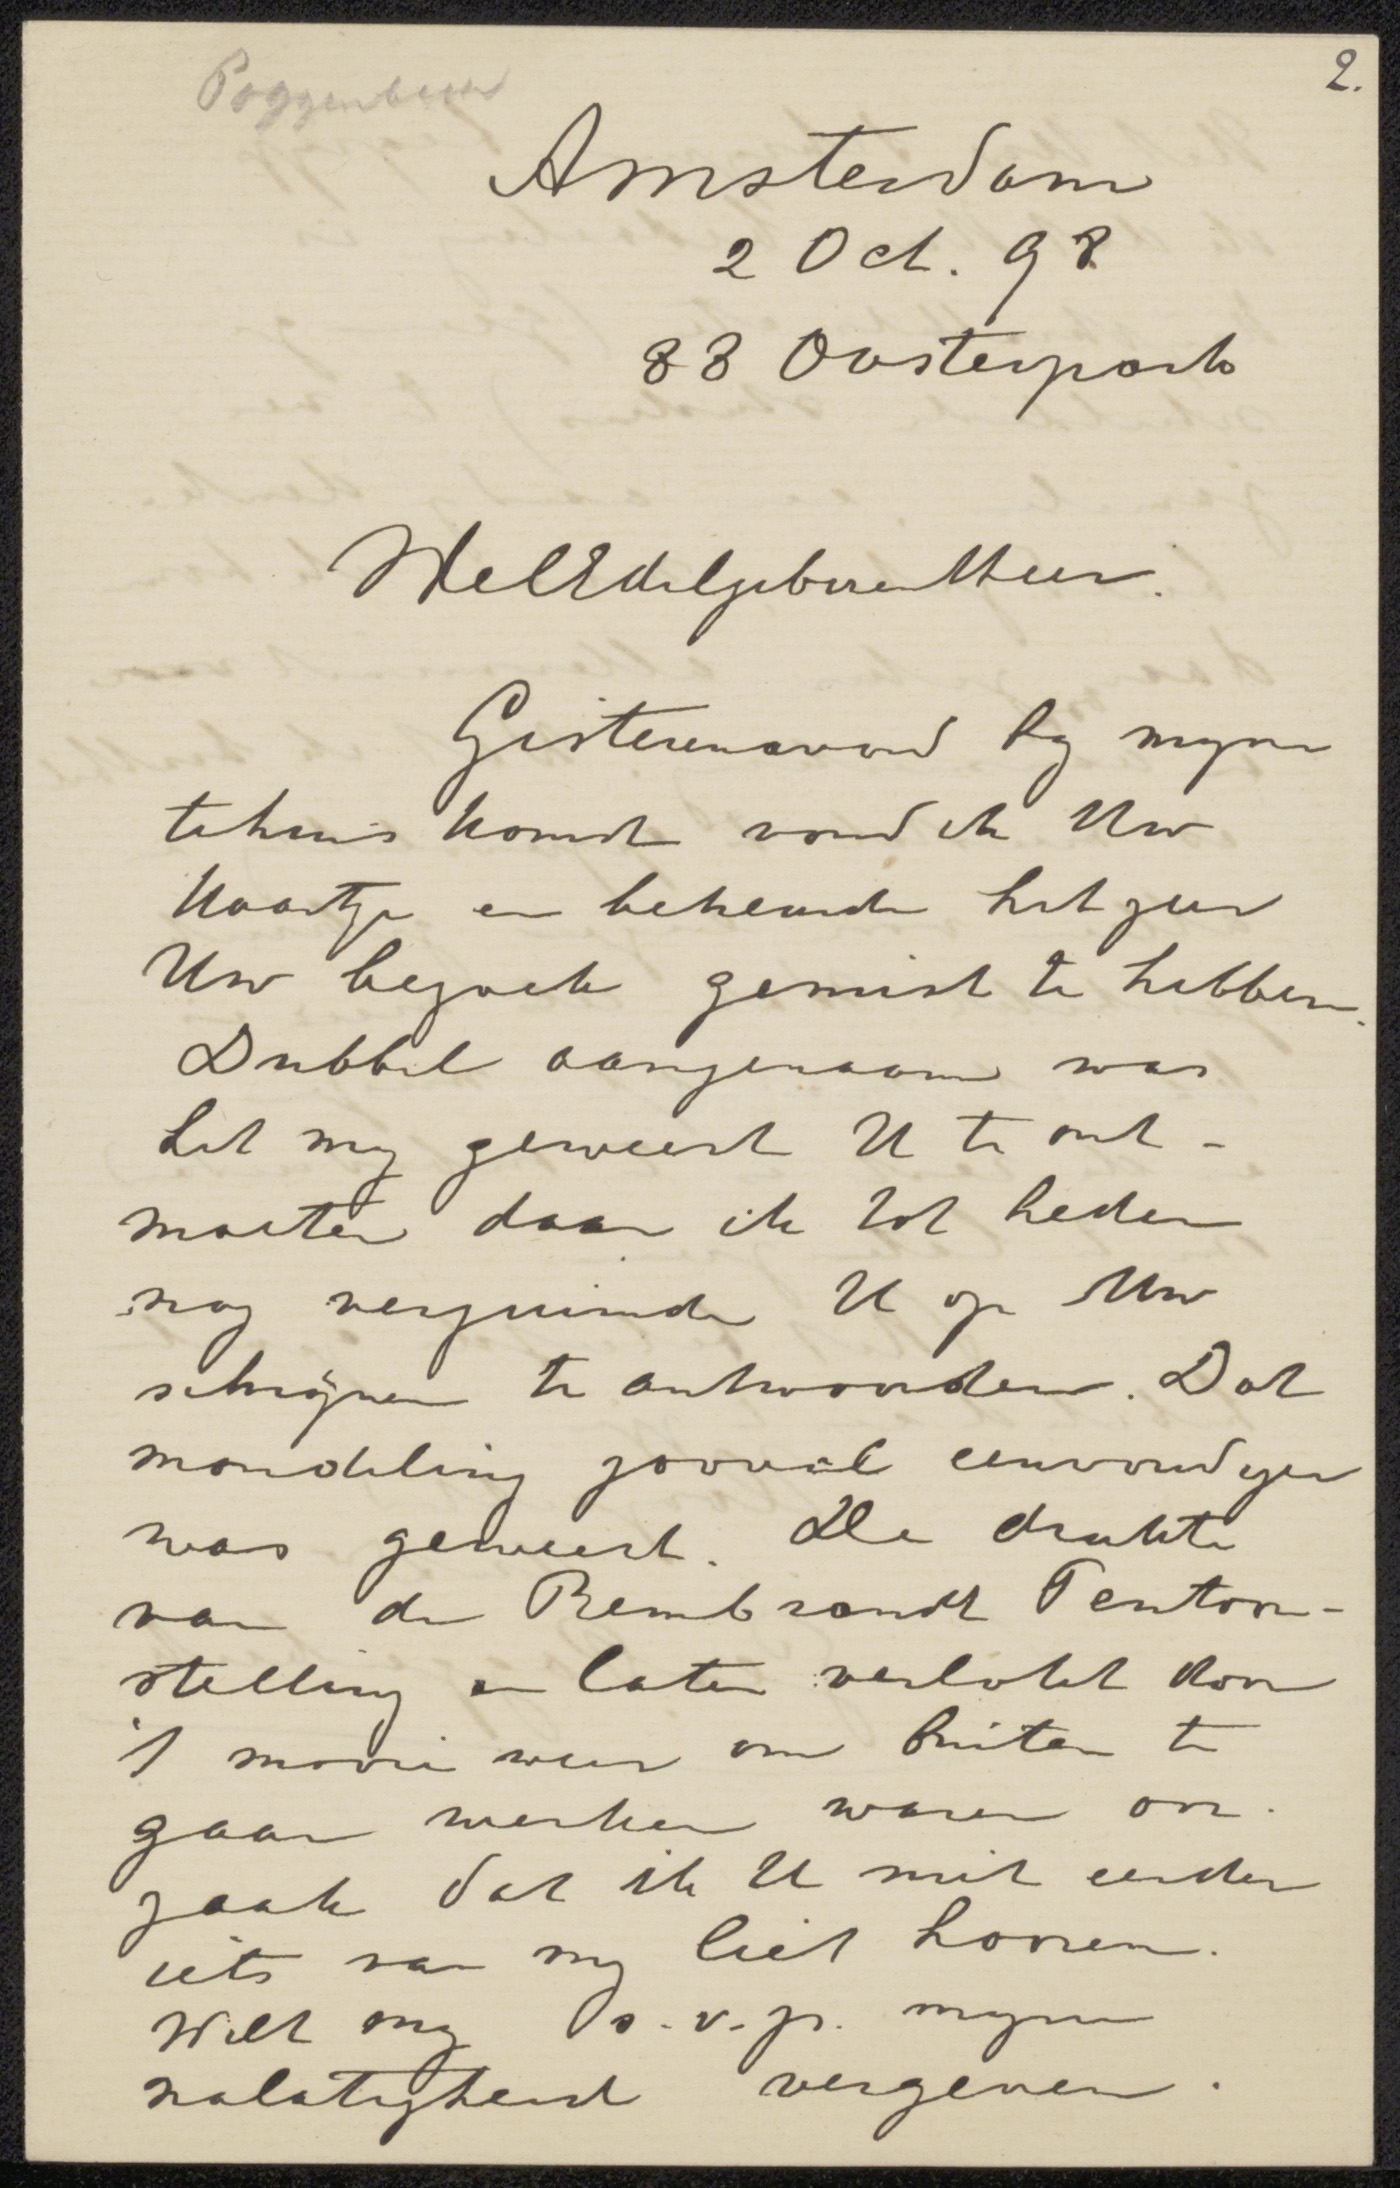 Poggenbeek
2.
Amsterdam
2 Oct. 98
88 Oosterpark
WelEdelgeboren Heer.
Gisterenavond by myne
tehuis komst vond ik Uw
kaartje en betreurde het zeer
Uw bezoek gemist te hebben.
Dubbel aangenaam was
het my geweest U te ont-
moeten daar ik tot heden
nog verzuimde U op Uw
schrijven te antwoorden. Dat
mondeling zooveel eenvoudiger
was geweest. De drukte
van de Rembrandt Tentoon-
stelling en later verlokt door
't mooie weer om buiten te
gaan werken waren oor-
zaak dat ik U niet eerder
iets van my liet hooren.
Wilt my s.v.p. myne
nalatigheid vergeven.